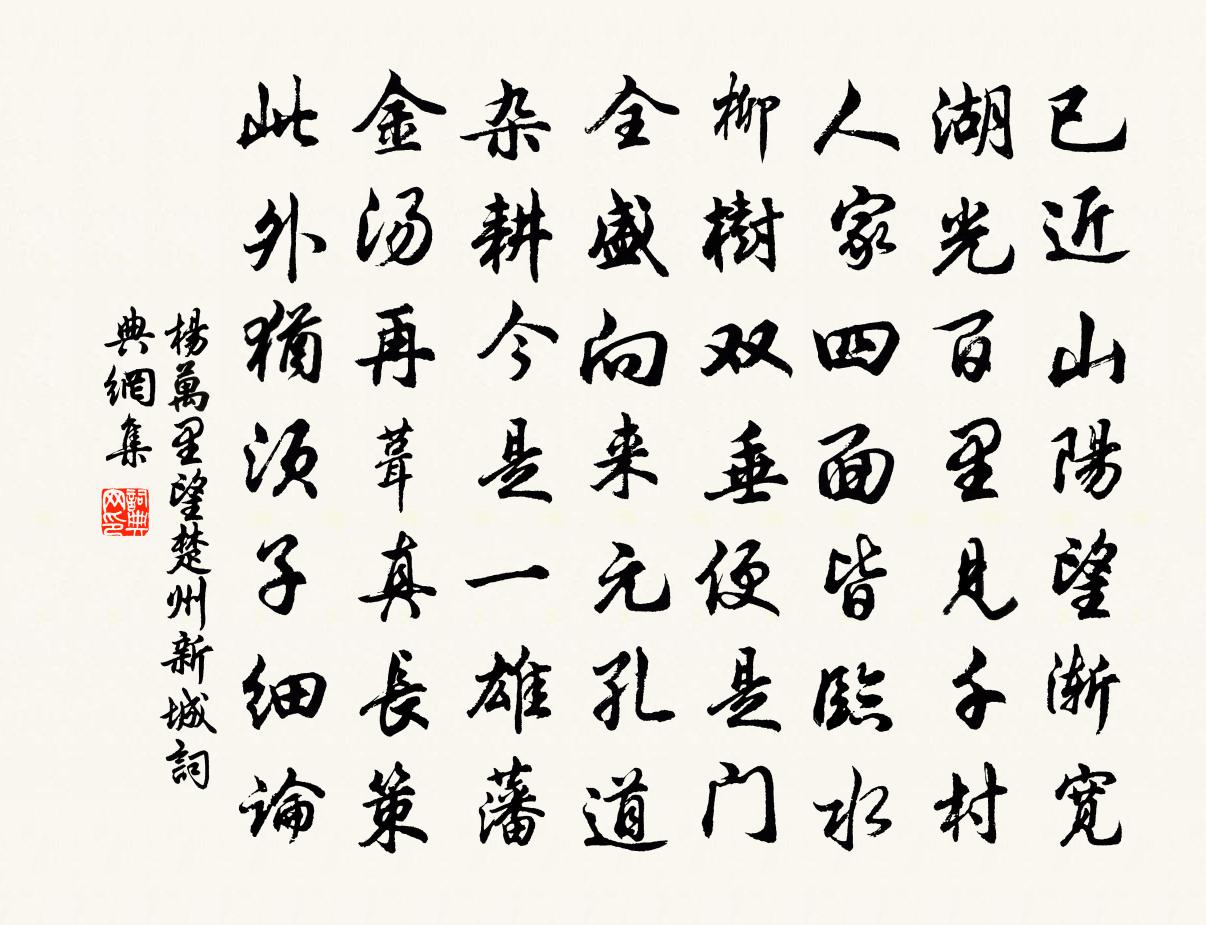 已近山陽望漸寬
湖光百里見千村
人家四面皆臨水
柳樹双垂便是门
全盛向来元孔道
杂耕今是一雄藩
金汤再葺真長策
此外猶须子细論
楊萬里望楚州新城詞
典網集
詞典
网印